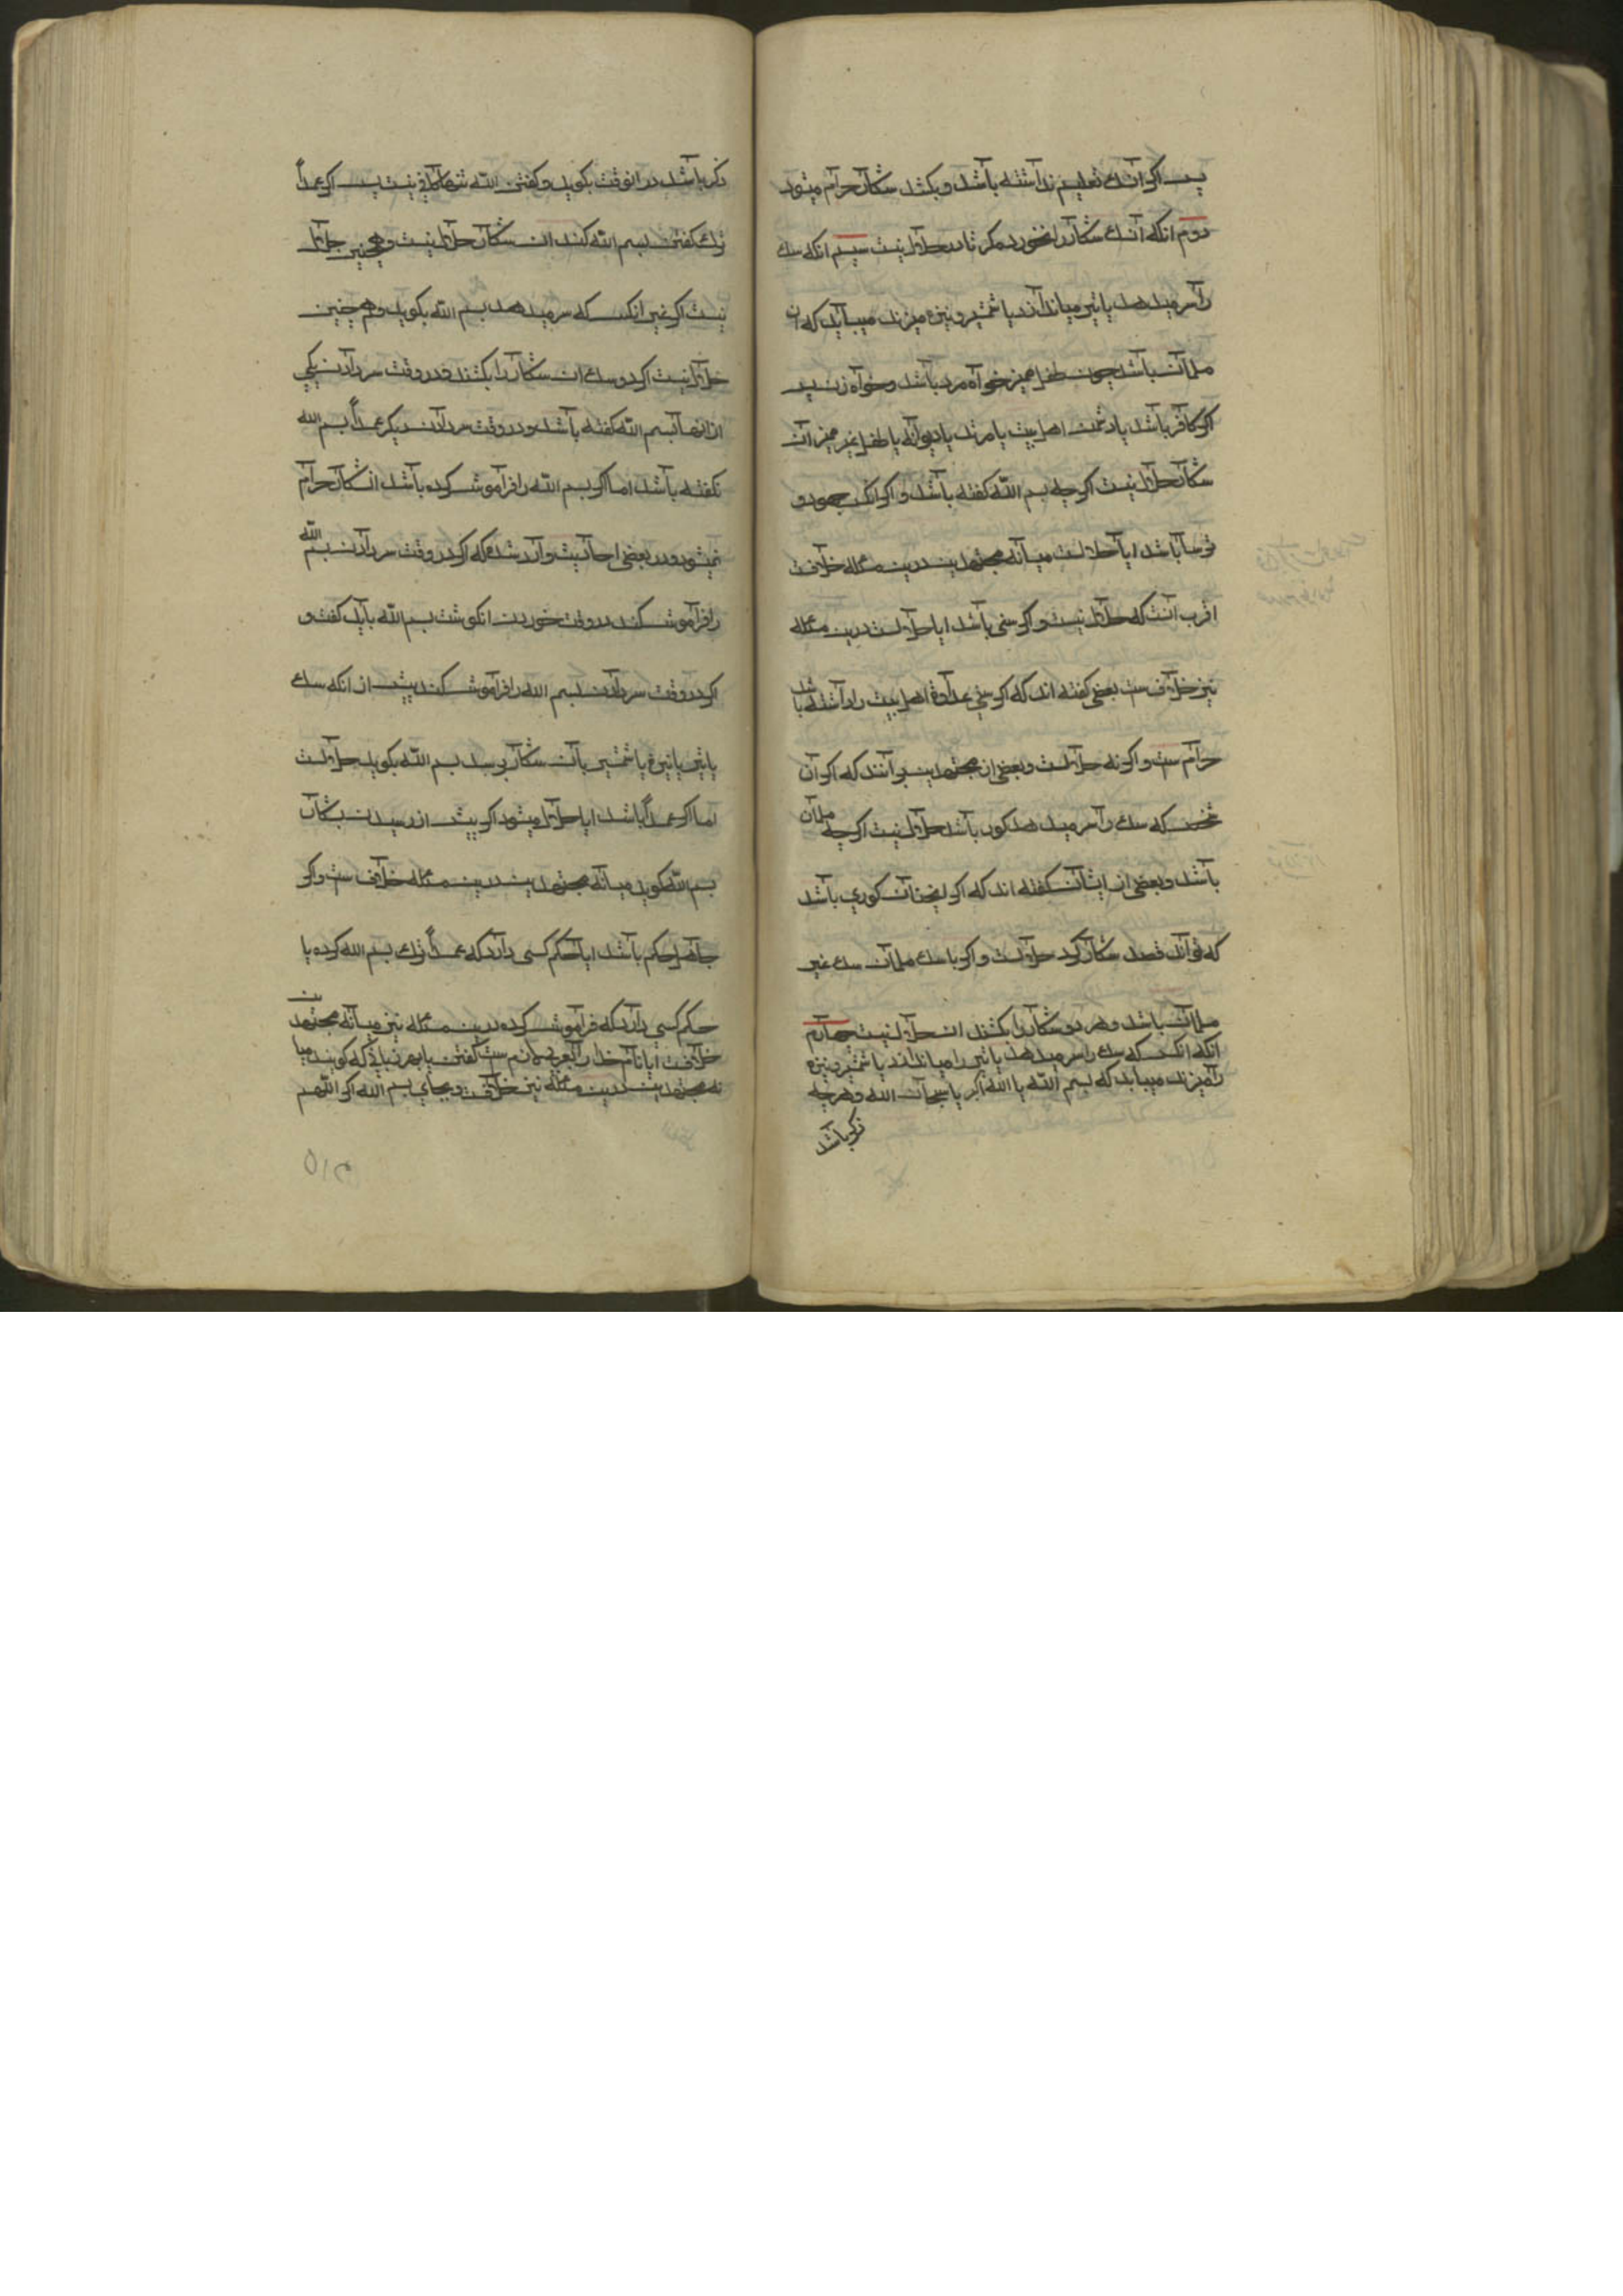 پس اکر ان سک تعلیم نداشته باشد و بکشد شکار حرام میشود
دوم انکه آن سک شکار را نخورد مکر نادر حلال نیست سیم انکه سک
را سر میدهد یا تیر میاندازد یا شمشیر و نیزه میزند میباید که ان
مسلمان باشد چون طفل ممیز خواه مرد باشد و خواه زن پس
اکر کافر باشد یا دشمن اهل بیت یا مرتد یا دیوانه یا طفل غیر ممیز آن
شکار حلال نیست اکرچه بسم اللّه کفته باشد و اکر انکس جهود و
ترسا باشد ایا حلالست میانه مجتهدین درین مسئله خلافست
اقرب انست که حلال نیست و اکر سنی باشد ایا حلالست درین مسئله
نیز خلاف ست بعضی کفته اند که اکر سنی عداوة اهل بیت را داشته باشد
حرام ست و اکرنه حلالست و بعضی از مجتهدین برآنند که اکر آن
شخص که سک را سر میدهد کور باشد حلال نیست اکرچه مسلمان
باشد و بعضی از ایشان کفته اند که اکر انچنان کوری باشد
که تواند قصد شکار کرد حلالست و اکر با سک مسلمان سک غیر
مسلمان باشد و هر دو شکار را بکشند ان حلال نیست چهارم
انکه انکس که سک را سر میدهد یا تیر را میاندازد یا شمشیر و نیزه
را میزند میباید که بسم اللّه یا اللّه اکبر یا سبحان اللّه و هرچه
ذکر باشد
ذکر باشد در انوقت بکوید و کفتن اللّه تنها کافی نیست پس اکر عمداً
ترک کفتن بسم اللّه کند ان شکار حلال نیست و همچنین حلال
نیست اکر غیر انکس که سر میدهد بسم اللّه بکوید و هم چنین
حلال نیست اکر دو سک ان شکار را بکشند و در وقت سر دادن یکی
از انها بسم اللّه کفته باشد و در وقت سر دادن دیکر عمداً بسم اللّه
نکفته باشد اما اکر بسم اللّه را فراموش کرده باشد ان شکار حرام
نمیشود و در بعضی احادیث وارد شده که اکر در وقت سر دادن بسم اللّه
را فراموش کند در وقت خوردن ان کوشت بسم اللّه باید کفت و
اکر در وقت سر دادن بسم اللّه را فراموش کند پیش از انکه سک
یا تیر یا نیزه یا شمشیر بآن شکار برسد بسم اللّه بکوید حلالست
اما اکر عمداً باشد ایا حلال میشود اکر پیش از رسیدن بشکار
بسم اللّه کوید میانه مجتهدین درین مسئله خلاف ست و اکر
جاهل حکم باشد ایا حکم کسی دارد که عمداً ترک بسم اللّه کرده یا
حکم کسی دارد که فراموش کرده درین مسئله نیز میانه مجتهدین
خلافست ایا نام خدا را بعربی لازم ست کفتن یا بهر زبانی که کویند میا
نه مجتهدین درین مسئله نیز خلافست و بجای بسم اللّه اکر اللّهم